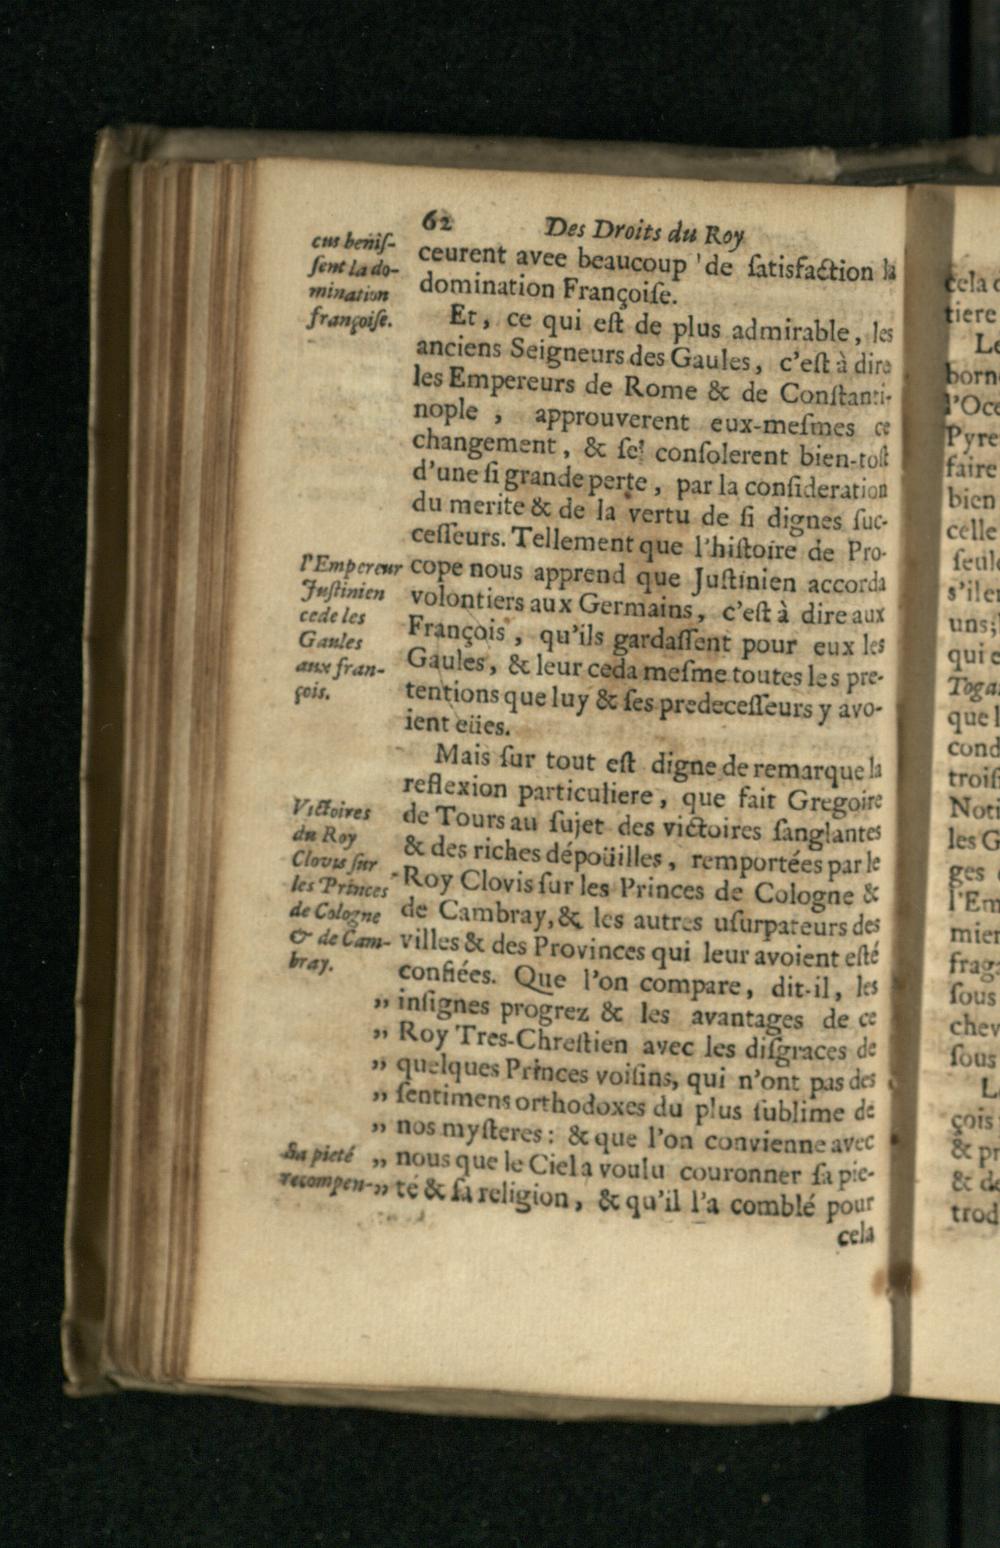 62 Des Droits du Roy
cus beniſ-
ſent la do-
mination
françoiſe.
ceurent avee beaucoup de ſatisfaction la
domination Françoiſe.
Et, ce qui eſt de plus admirable, les
anciens Seigneurs des Gaules, c'eſt à dire
les Empereurs de Rome & de Conſtanti-
nople, approuverent eux-meſmes ce
changement, & ſe conſolerent bien-toſt
d'une ſi grande perte, par la conſideration
du merite & de la vertu de ſi dignes ſuc-
ceſſeurs. Tellement que l'hiſtoire de Pro-
l'Empereur
Juſtinien
cede les
Gaules
aux fran-
çois.
cope nous apprend que Juſtinien accorda
volontiers aux Germains, c'eſt à dire aux
François, qu'ils gardaſſent pour eux les
Gaules, & leur ceda meſme toutes les pre-
tentions que luy & ſes predeceſſeurs y avo-
ient eües.
Mais ſur tout eſt digne de remarque la
reflexion particuliere, que fait Gregoire
Victoires
du Roy
Clovis ſur
les Princes
de Cologne
& de Cam-
bray.
de Tours au ſujet des victoires ſanglantes
& des riches dépoüilles, remportées par le
Roy Clovis ſur les Princes de Cologne &
de Cambray, & les autres uſurpateurs des
villes & des Provinces qui leur avoient eſté
confiées. Que l'on compare, dit-il, les
„ inſignes progrez & les avantages de ce
„ Roy Tres-Chreſtien avec les diſgraces de
„ quelques Princes voiſins, qui n'ont pas des
„ ſentimens orthodoxes du plus ſublime de
„ nos myſteres: & que l'on convienne avec
Sa pieté
recompen-
„ nous que le Ciel a voulu couronner ſa pie-
„ té & ſa religion, & qu'il l'a comblé pour
cela
cela
tiere
Pyre
faire
bien
celle
uns;
Toga
cond
les G
ges
ſous
ſous
çois